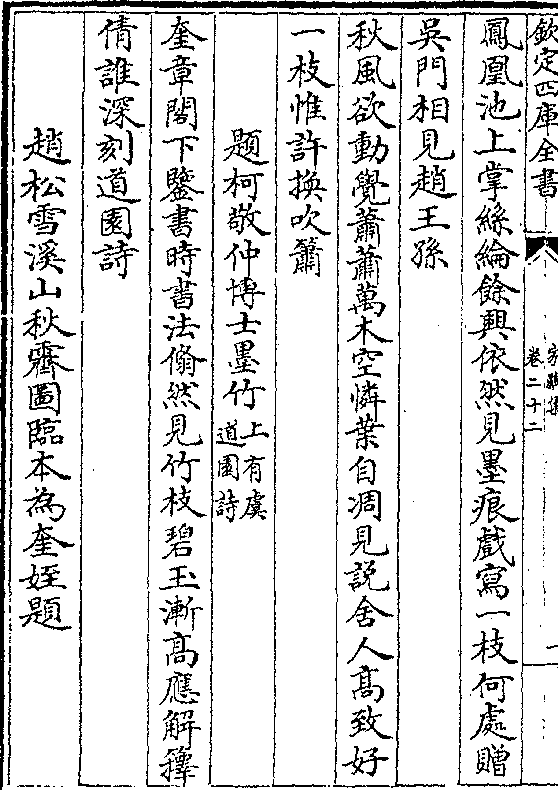 欽定四庫全書
卷二十二
鳳凰池上掌絲綸餘興依然見墨痕戲寫一枝何處贈
吳門相見趙王孫
秋風欲動覺蕭蕭萬木空憐葉自凋見說舍人高致好
一枝惟許換吹簫
題柯敬仲博士墨竹上有虞道園詩
奎章閣下鑒書時書法翛然見竹枝碧玉漸高應解籜
倩誰深刻道園詩
趙松雪溪山秋霽圖臨本為奎姪題